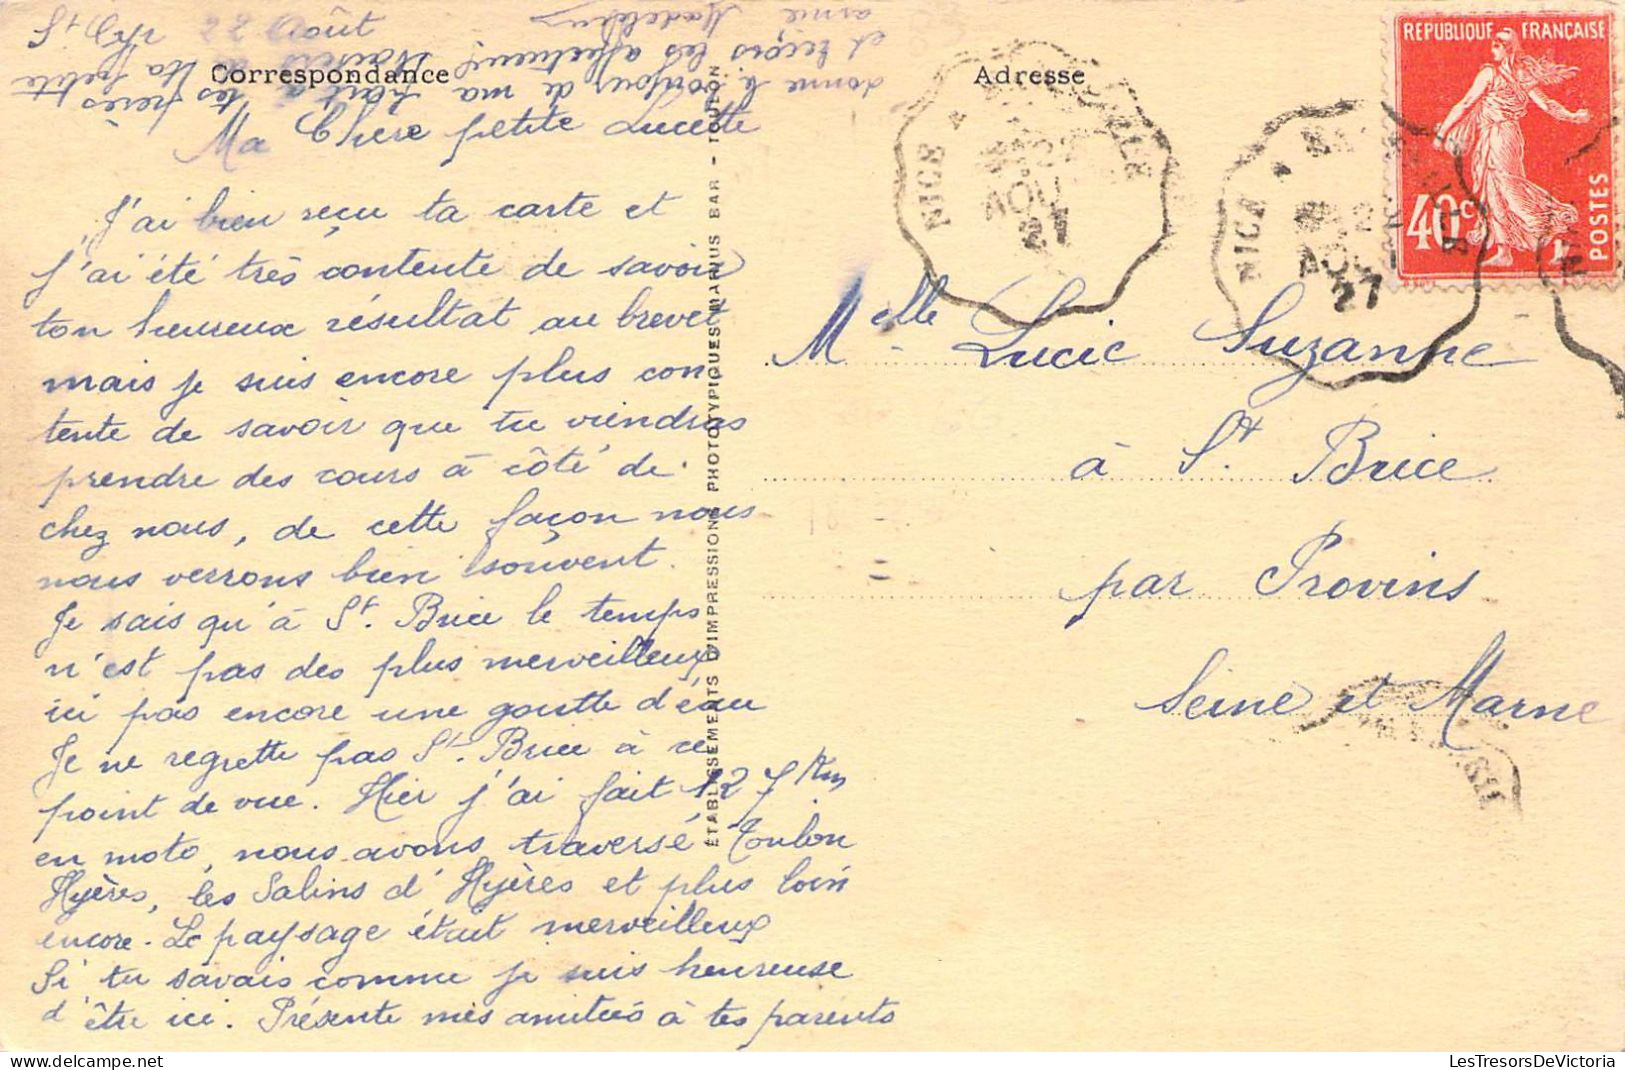 St Cyr 22 Août
Correspondance
Ma Chère petite Lucette
J'ai bien reçu ta carte et
j'ai été très contente de savoir
ton heureux résultat au brevet
mais je suis encore plus con
tente de savoir que tu viendras
prendre des cours à côté de
chez nous, de cette façon nous
nous verrons bien souvent.
Je sais qu'à St. Brice le temps
n'est pas des plus merveilleux
ici pas encore une goutte d'eau
Je ne regrette pas St. Brice à ce
point de vue. Hier j'ai fait 127 km
en moto, nous avons traversé Toulon
Hyères, les Salins d'Hyères et plus loin
encore. Le paysage était merveilleux
Si tu savais comme je suis heureuse
d'être ici. Présente mes amitiés à tes parents
donne le bonjour de ma part à tes frères
et reçois les affectueux baisers de ta petite
amie Madeleine
ÉTABLISSEMENTS D'IMPRESSIONS PHOTOTYPIQUES MARIUS BAR - TOULON
Adresse
REPUBLIQUE FRANÇAISE
40c
POSTES
NICE
AOU
27
NICE
27
Melle Lucie Suzanne
à St. Brice
par Provins
Seine et Marne
LesTresorsDeVictoria